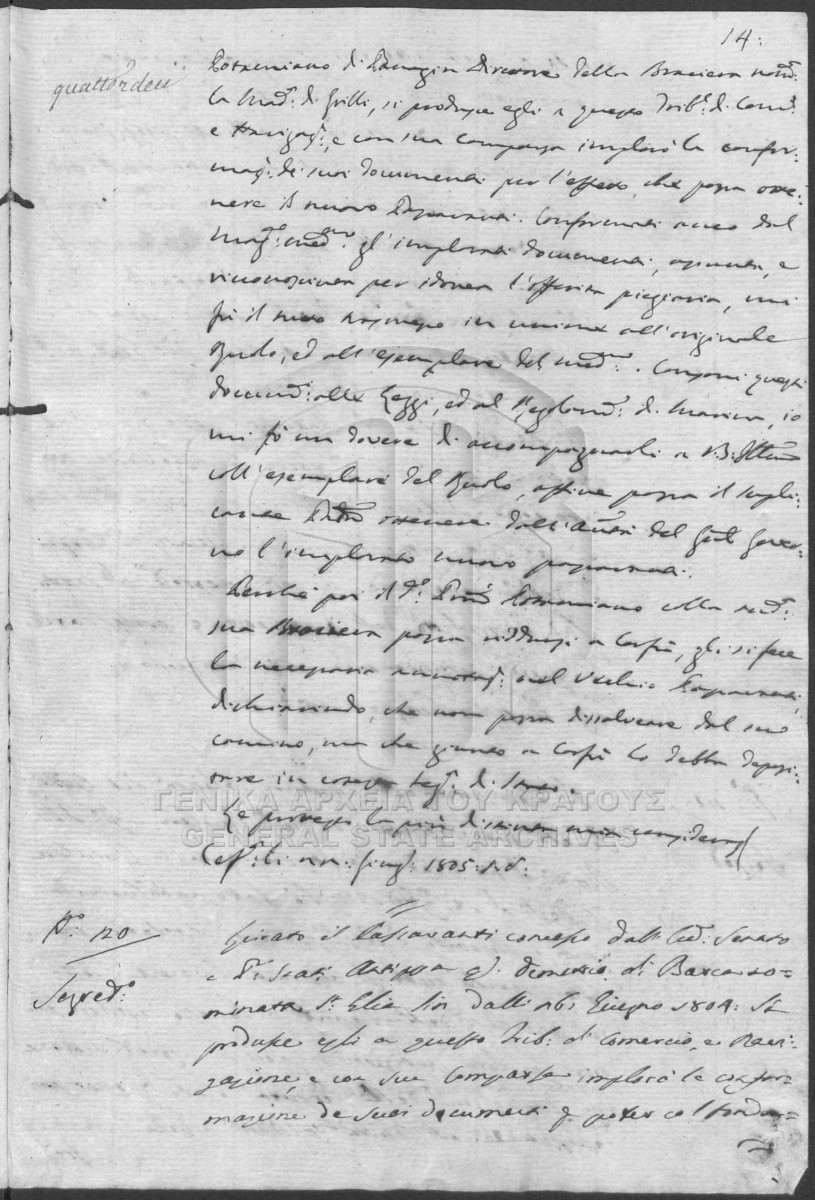 14:
quattordeci
di Panagin Direttore della Braciera nom:
la Mad: di Grilli, si produsse egli a questo Trib: di Com:
e Navigaz:, e con sua Comparsa implorò la confor-
maz: de suoi documenti per l'effetto, che possa otte-
nere il nuovo Passavanti. Confermati anco dal
Mag: med:mo gl'implorati documenti, assunta, e
riconosciuta per idonea l'offerta piegiaria, mi
fù il tutto trasmesso in unione all'originale
Ruolo, ed all'esemplare del med:mo. Consoni questi
docum: alle Leggi, ed al Regolam: di Marina, io
mi fò un dovere di accompagnarli a V: Ill:ma
coll'esemplare del Ruolo, affine possa il suppli-
cante ottenere dall'Autori del Gover-
no l'implorato nuovo passavanti.
Perchè poi il d: Pad: colla sud:
sua Braciera possa ridursi a Corfù, gli si fece
la necessaria annotaz: nel Vecchio Passavanti,
dichiarando, che non possa dissolvere dal suo
camino, ma che giunto a Corfù lo debba deposi-
tare in cotesta Seg: di Stato.
Le protesto la più distinta mia consideraz:
Cef: li Giug: 1805. S.V.
N:o 120
Segred:o
Girato il Passavanti concesso dall' Ecc: Senato
a P: Scati Antippa q: Demetrio di Barca no-
minata S: Elia sin dalli 16 Giugno 1804: Si
produsse egli a questo Trib: di Comercio, e Navi-
gazione, e con sua Comparsa implorò la confor-
mazione de suoi documenti p: poter col
ΓΕΝΙΚΑ ΑΡΧΕΙΑ ΤΟΥ ΚΡΑΤΟΥΣ
GENERAL STATE ARCHIVES